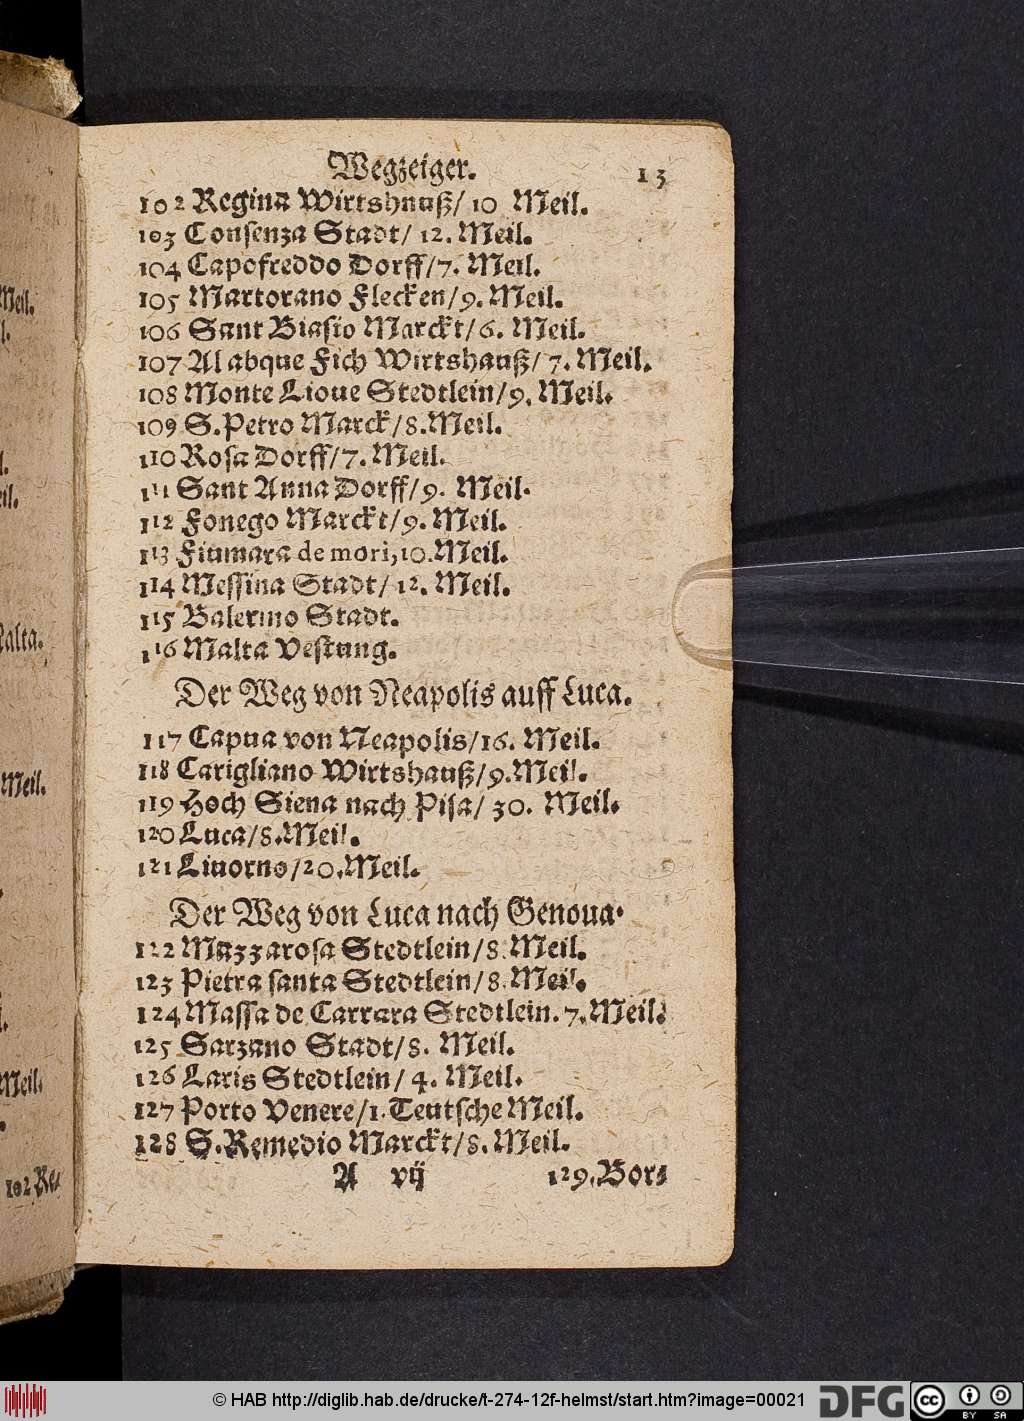 Wegzeiger. 13
102 Regina Wirtshnuß/ 10 Meil.
103 Consenza Stadt/ 12. Meil.
104 Capofreddo Dorff/7. Meil.
105 Martorano Flecken/9. Meil.
106 Sant Biasio Marckt/6. Meil.
107 Al abque Fich Wirtshauß/ 7. Meil.
108 Monte Lioue Stedtlein/9. Meil.
109 S. Petro Marck/8. Meil.
110 Rosa Dorff/7. Meil.
111 Sant Anna Dorff/9. Meil.
112 Fonego Marckt/9. Meil.
113 Fiumara de mori, 10. Meil.
114 Messina Stadt/ 12. Meil.
115 Balermo Stadt.
116 Malta Vestung.
Der Weg von Neapolis auff Luca.
117 Capua von Neapolis/16. Meil.
118 Carigliano Wirtshauß/9. Meil.
119 Hoch Siena nach Pisa/ 30. Meil.
120 Luca/8. Meil.
121 Liuorno/20. Meil.
Der Weg von Luca nach Genoua.
122 Mazzarosa Stedtlein/8. Meil.
123 Pietra santa Stedtlein/8. Meil.
124 Massa de Carrara Stedtlein. 7. Meil.
125 Sarzano Stadt/8. Meil.
126 Laris Stedtlein/ 4. Meil.
127 Porto Venere/1. Teutsche Meil.
128 S. Remedio Marckt/8. Meil.
A vij 129. Bor⸗
Meil.
l.
l.
eil.
alta.
Meil.
Meil.
102 Re⸗
© HAB http://diglib.hab.de/drucke/t-274-12f-helmst/start.htm?image=00021 DFG cc BY SA